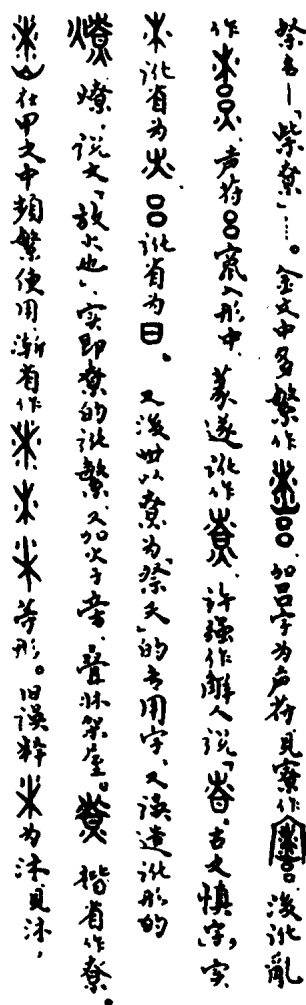 祭名—「柴尞」……。金文中多繁作加吕字为声符見寮作後讹亂
作声符吕竄入形中，篆遂讹作許強作解人说「昚，古文慎字」，实
讹省为火吕讹省为日。又後世以尞为「祭天」的专用字，又误造讹形的
燎，说文「放火也」，实即尞的讹繁，又加火于旁，叠牀架屋。楷省作尞。
在甲文中频繁使用，渐省作等形。旧误释为沐，見沐，